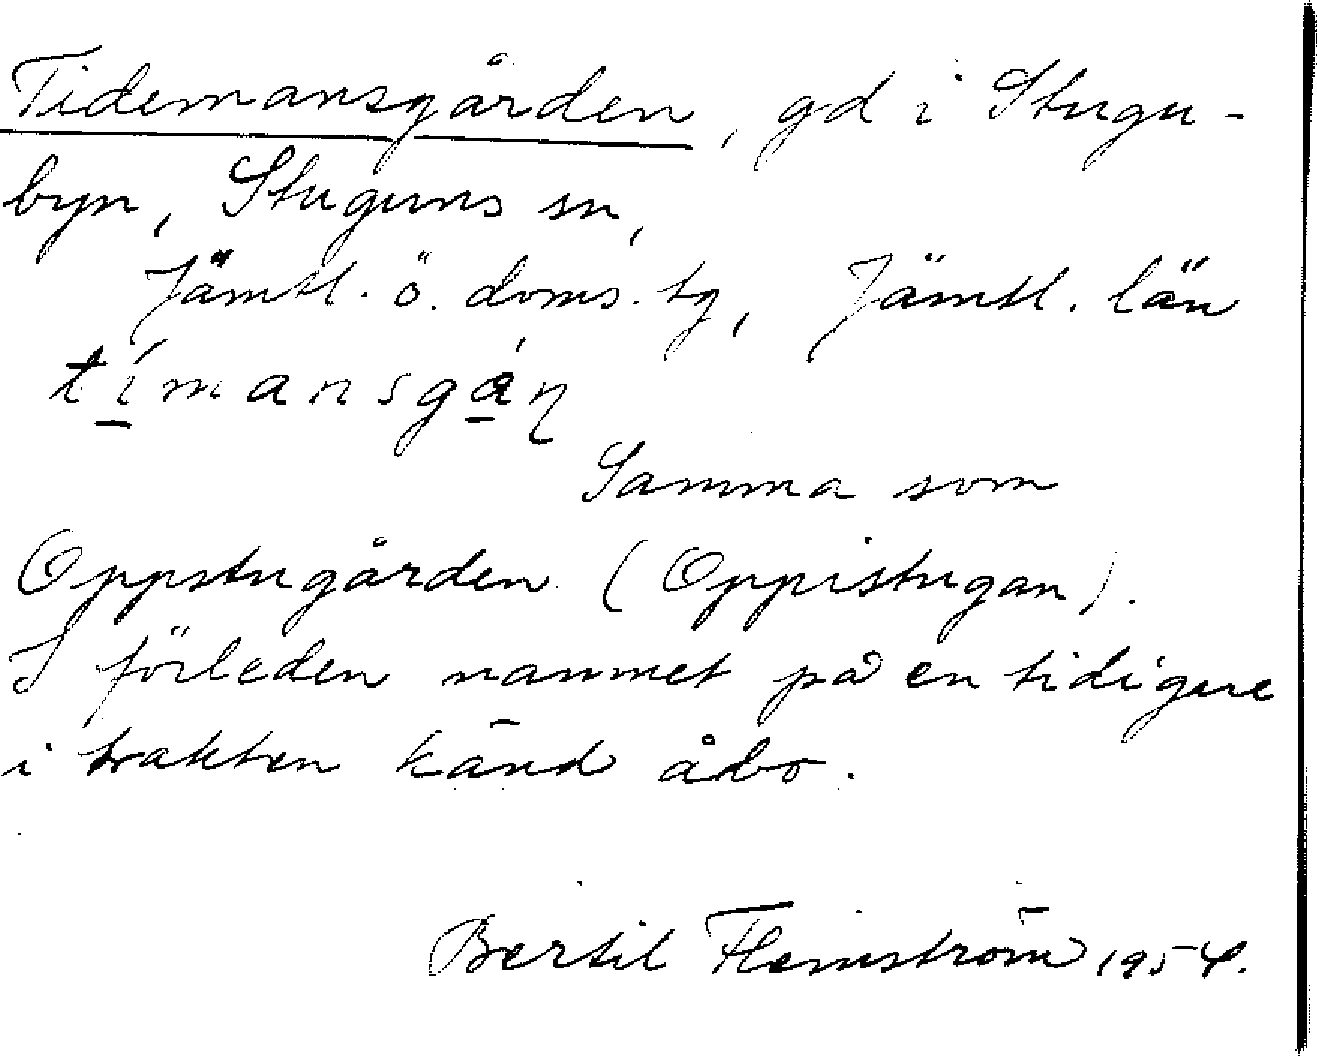 Tidemansgården, gd i Stugu-
byn, Stuguns sn,
Jämtl. ö. doms. tg, Jämtl. län
tímansgáṇ
Samma som
Oppstugården (Oppistugan).
I förleden namnet på en tidigare
i trakten känd åbo.
Bertil Flemström 1954.